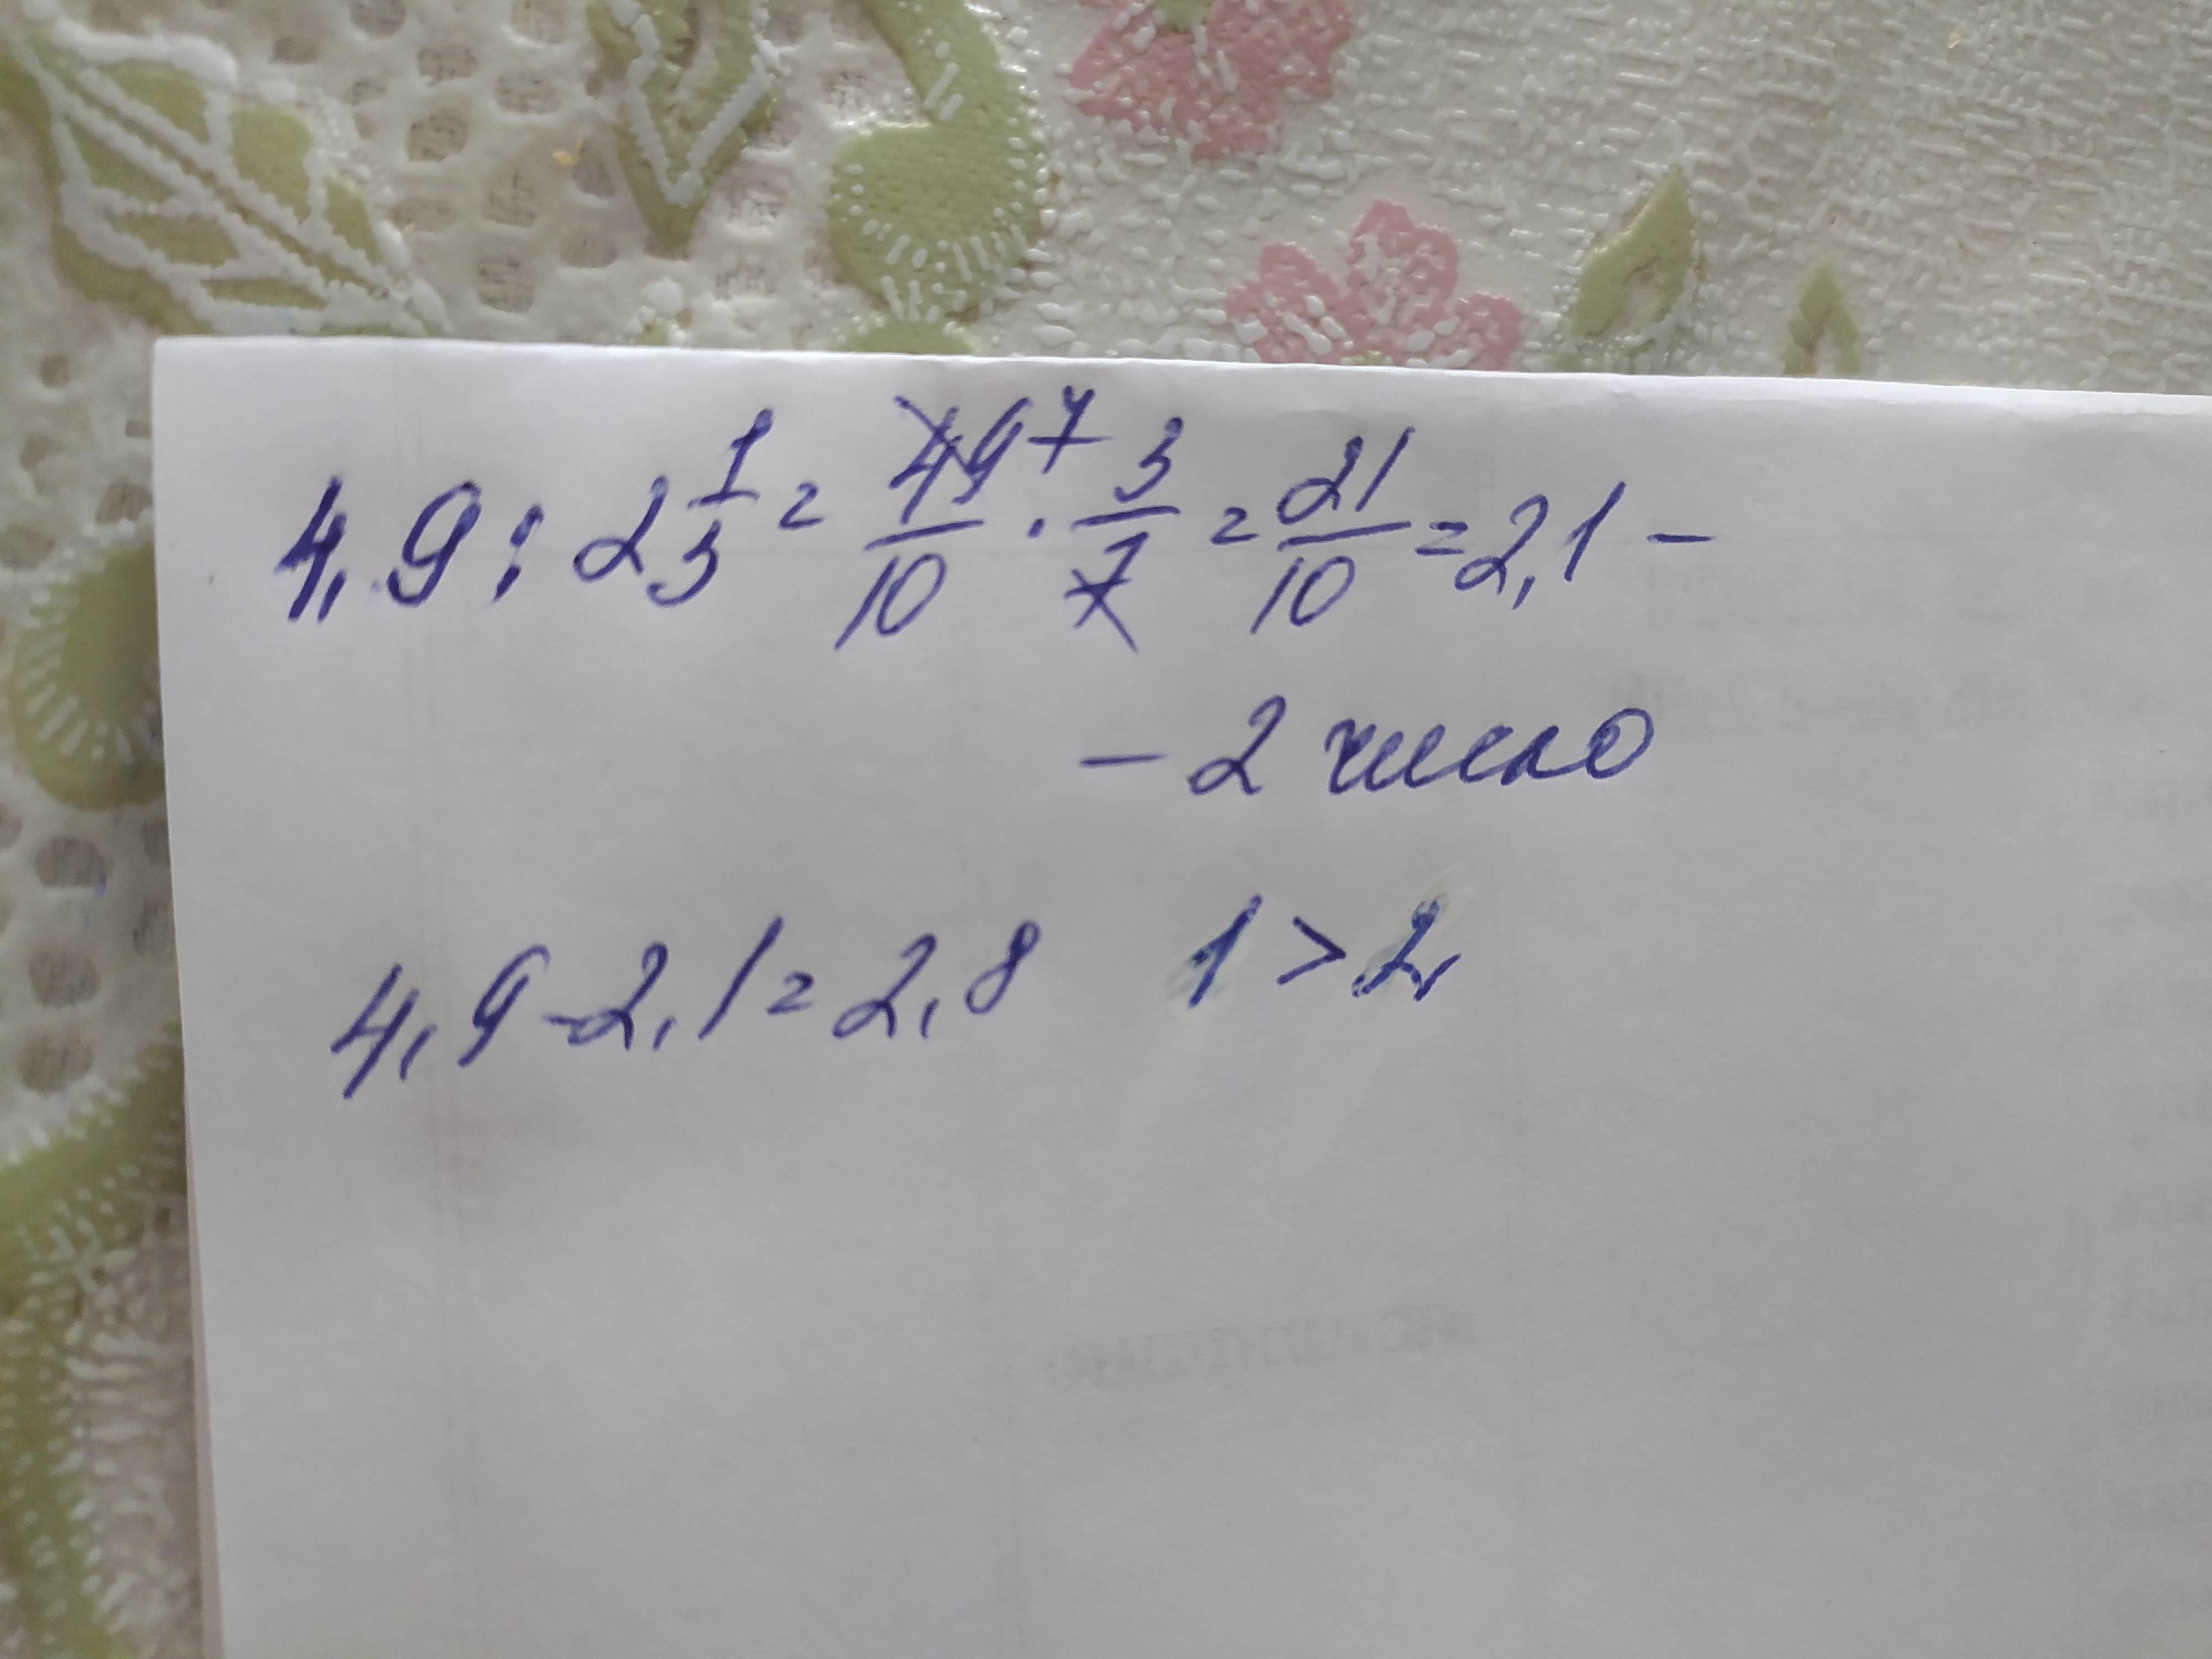 4,9 : 2 1/3 = 49/10 7 · 3/7 = 21/10 = 2,1 –
– 2 число
4,9 - 2,1 = 2,8 1 > 2,